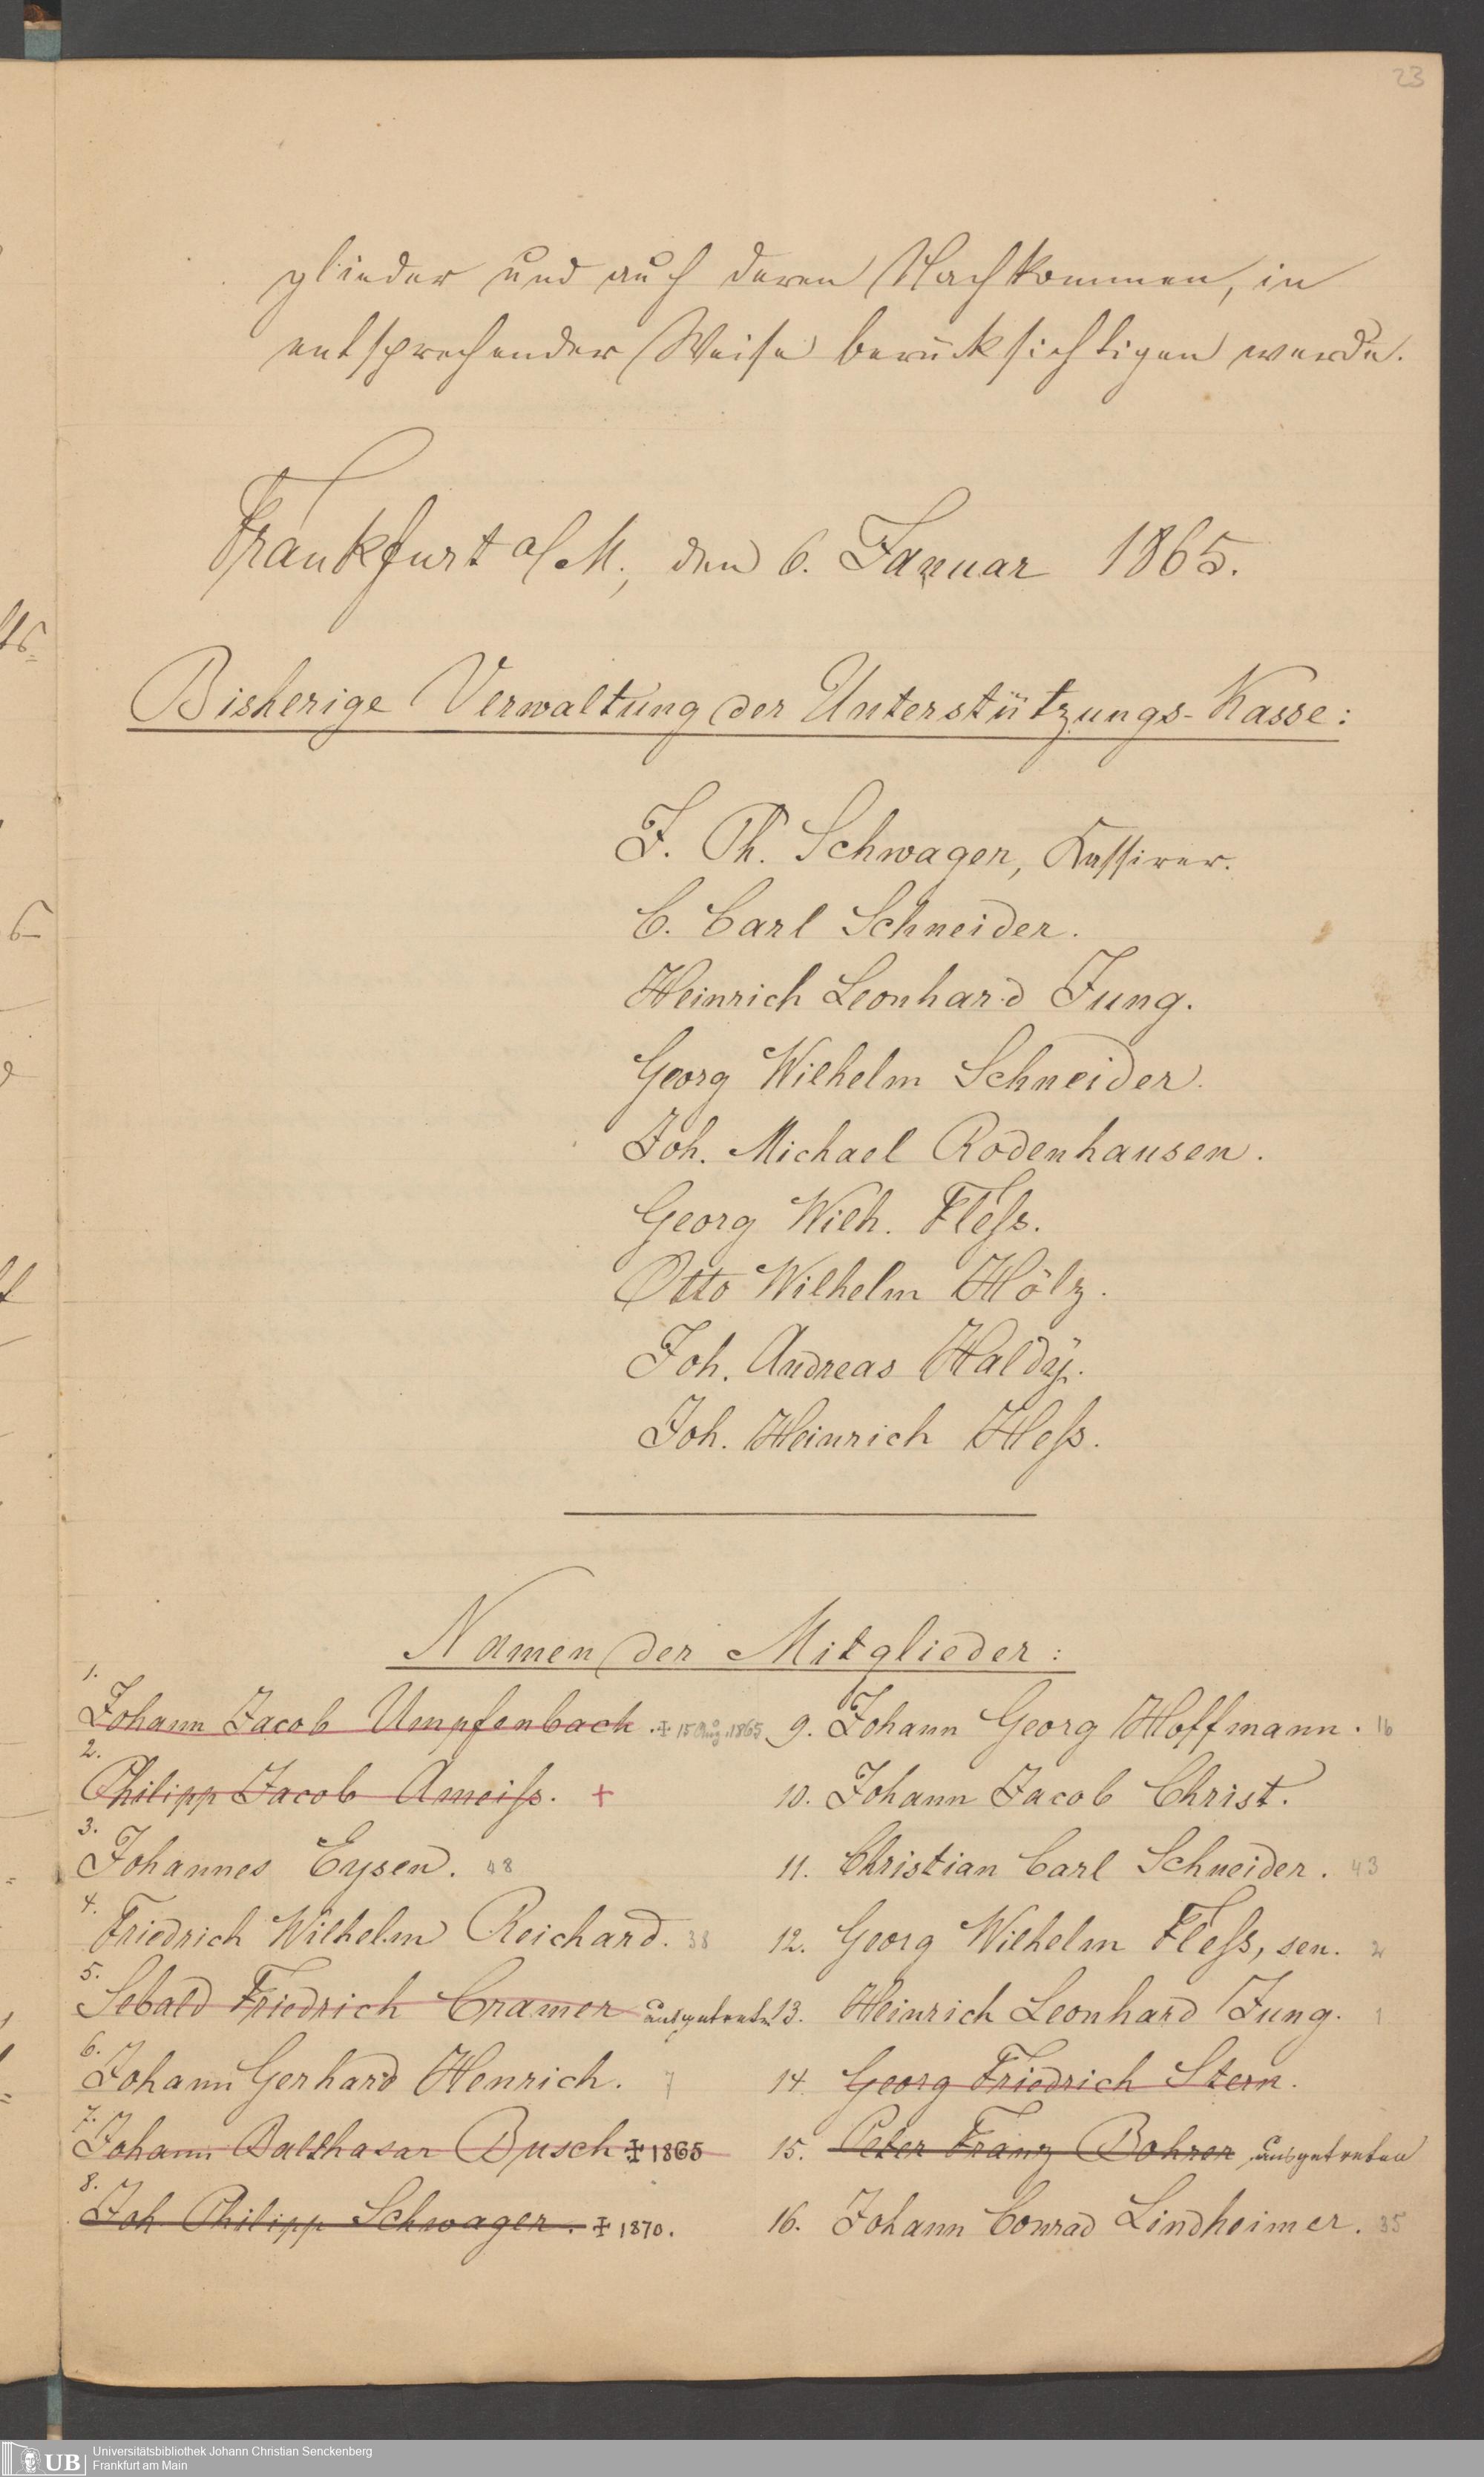 23
glieder und auch deren Nachkommen, in
entsprechender Weise berücksichtigen werde.
Frankfurt a/M., den 6. Januar 1865.
Bisherige Verwaltung der Unterstützungs-Kasse:
J. Ph. Schwager, Kassirer.
C. Carl Schneider.
Heinrich Leonhard Jung.
Georg Wilhelm Schneider.
Joh. Michael Rodenhausen.
Georg Wilh. Fleſs.
Otto Wilhelm Hölz.
Joh. Andreas Haldÿ.
Joh. Heinrich Heſs.
Namen der Mitglieder:
1.
Johann Jacob Umpfenbach. ‡ 15 Aug. 1865
2.
Philipp Jacob Ameiſs. +
3.
Johannes Eysen. 48
4.
Friedrich Wilhelm Reichard. 38
5.
Sebald Friedrich Cramer ausgetreten
6.
Johann Gerhard Henrich. 7
7.
Johann Balthasar Busch ‡ 1865
8.
Joh. Philipp Schwager. ‡ 1870.
9. Johann Georg Hoffmann. 16
10. Johann Jacob Christ.
11. Christian Carl Schneider. 43
12. Georg Wilhelm Fleſs, sen. 2
13. Heinrich Leonhard Jung. 1
14. Georg Friedrich Stern.
15. Peter Franz Bohrer, ausgetreten
16. Johann Conrad Lindheimer. 35
UB
Universitätsbibliothek Johann Christian Senckenberg
Frankfurt am Main